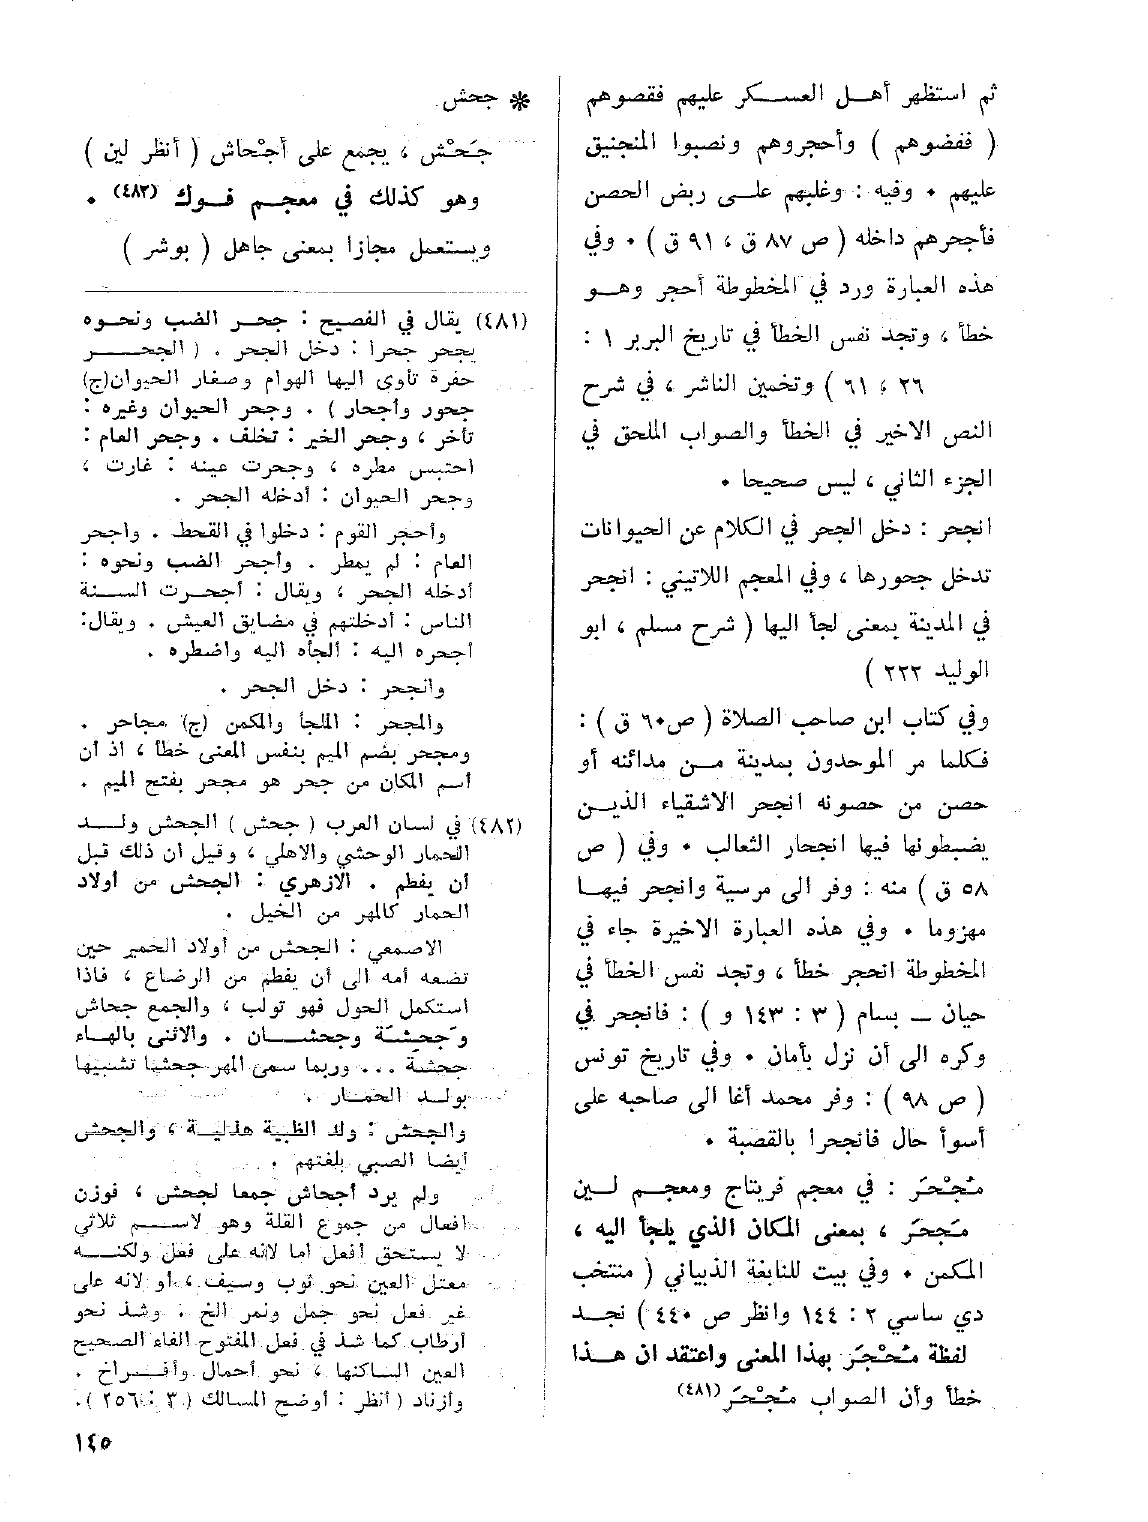 ثم استظهر أهـل العسـكر عليهم فقصوهم
( ففضوهم ) وأحجروهم ونصبوا المنجنيق
عليهم • وفيه : وغلبهم علـى ربض الحصن
فأجحرهم داخله ( ص ٨٧ ق ، ٩١ ق ) • وفي
هذه العبارة ورد في المخطوطة أحجر وهـو
خطأ ، وتجد نفس الخطأ في تاريخ البربر ١ :
٢٦ ، ٦١ ) وتخمين الناشر ، في شرح
النص الاخير في الخطأ والصواب الملحق في
الجزء الثاني ، ليس صحيحا •
انجحر : دخل الجحر في الكلام عن الحيوانات
تدخل جحورها ، وفي المعجم اللاتيني : انجحر
في المدينة بمعنى لجأ اليها ( شرح مسلم ، ابو
الوليد ٢٢٢ )
وفي كتاب ابن صاحب الصلاة ( ص٦٠ ق ) :
فكلما مر الموحدون بمدينة مـن مدائنه أو
حصن من حصونه انجحر الاشقياء الذيـن
يضبطونها فيها انجحار الثعالب • وفي ( ص
٥٨ ق ) منه : وفر الى مرسية وانجحر فيهـا
مهزوما • وفي هذه العبارة الاخيرة جاء في
المخطوطة انحجر خطأ ، وتجد نفس الخطأ في
حيان ــ بسام ( ٣ : ١٤٣ و ) : فانجحر في
وكره الى أن نزل بأمان • وفي تاريخ تونس
( ص ٩٨ ) : وفر محمد آغا الى صاحبه على
أسوأ حال فانجحرا بالقصبة •
مُنْجَحَر : في معجم فريتاج ومعجـم لـين
مَجحَر ، بمعنى المكان الذي يلجأ اليه ،
المكمن • وفي بيت للنابغة الذبياني ( منتخب
دي ساسي ٢ : ١٤٤ وانظر ص ٤٤٠ ) نجـد
لفظة مُنْحَجَر بهذا المعنى واعتقد ان هـذا
خطأ وأن الصواب مُنْجَحَر (٤٨١)
* جحش
جَحْش ، يجمع على أجْحاش ( أنظر لين )
وهو كذلك في معجـم فـوك (٤٨٢) •
ويستعمل مجازا بمعنى جاهل ( بوشر )
(٤٨١) يقال في الفصيح : جحـر الضب ونحـوه
يجحر جحرا : دخل الجحر . ( الجحـــر
حفرة تأوى اليها الهوام وصغار الحيوان(ج)
جحور وأجحار ) . وجحر الحيوان وغيره :
تأخر ، وجحر الخير : تخلف . وجحر العام :
احتبس مطره ، وجحرت عينه : غارت ،
وجحر الحيوان : أدخله الجحر .
وأجحر القوم : دخلوا في القحط . واجحر
العام : لم يمطر . وأجحر الضب ونحوه :
أدخله الجحر ، ويقال : أجحـرت السـنة
الناس : أدخلتهم في مضايق العيش . ويقال:
أجحره اليه : الجأه اليه واضطره .
وانجحر : دخل الجحر .
والمجحر : الملجأ والمكمن (ج) مجاحر .
ومجحر بضم الميم بنفس المعنى خطأ ، اذ أن
أسم المكان من جحر هو مجحر بفتح الميم .
(٤٨٢) في لسان العرب ( جحش ) الجحش ولـد
الحمار الوحشي والاهلي ، وقيل أن ذلك قبل
أن يفطم . الازهري : الجحش من أولاد
الحمار كالمهر من الخيل .
الاصمعي : الجحش من أولاد الحمير حين
تضعه أمه الى أن يفطم من الرضاع ، فاذا
استكمل الحول فهو تولب ، والجمع جحاش
وَجحِشَة وجحشـان . والانثى بالهـاء
جحشة ... وربما سمى المهر جحشا تشبيها
بولـد الحمـار .
والجحش : ولد الظبية هذليـة ، والجحش
أيضا الصبي بلغتهم .
ولم يرد أجحاش جمعا لجحش ، فوزن
افعال من جموع القلة وهو لاسـم ثلاثي
لا يستحق أفعل اما لانه على فعل ولكنـه
معتل العين نحو ثوب وسيف ، أو لانه على
غير فعل نحو جمل ونمر الخ . وشذ نحو
أرطاب كما شذ في فعل المفتوح الفاء الصحيح
العين الساكنها ، نحو أحمال وأفـراخ .
وأزناد ( أنظر : أوضح المسالك ( ٣ : ٢٥٦ ).
١٤٥